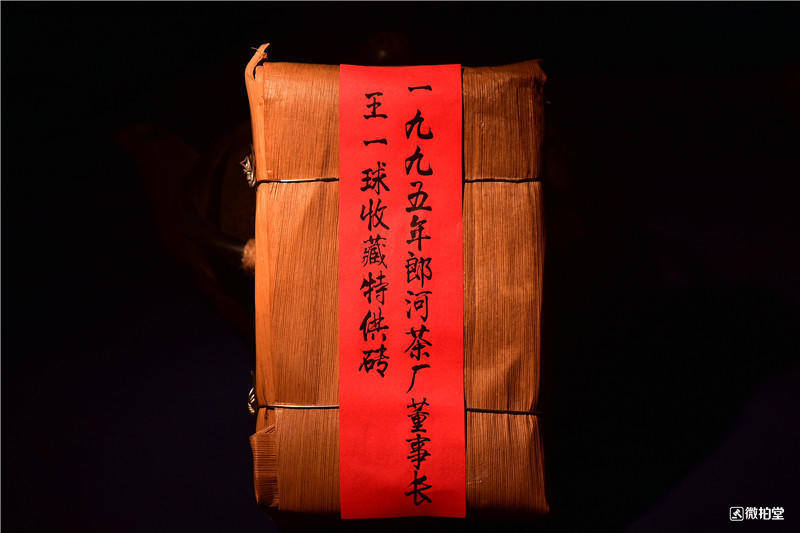 一九九五年郎河茶厂董事长
王一球收藏特供砖
微拍堂